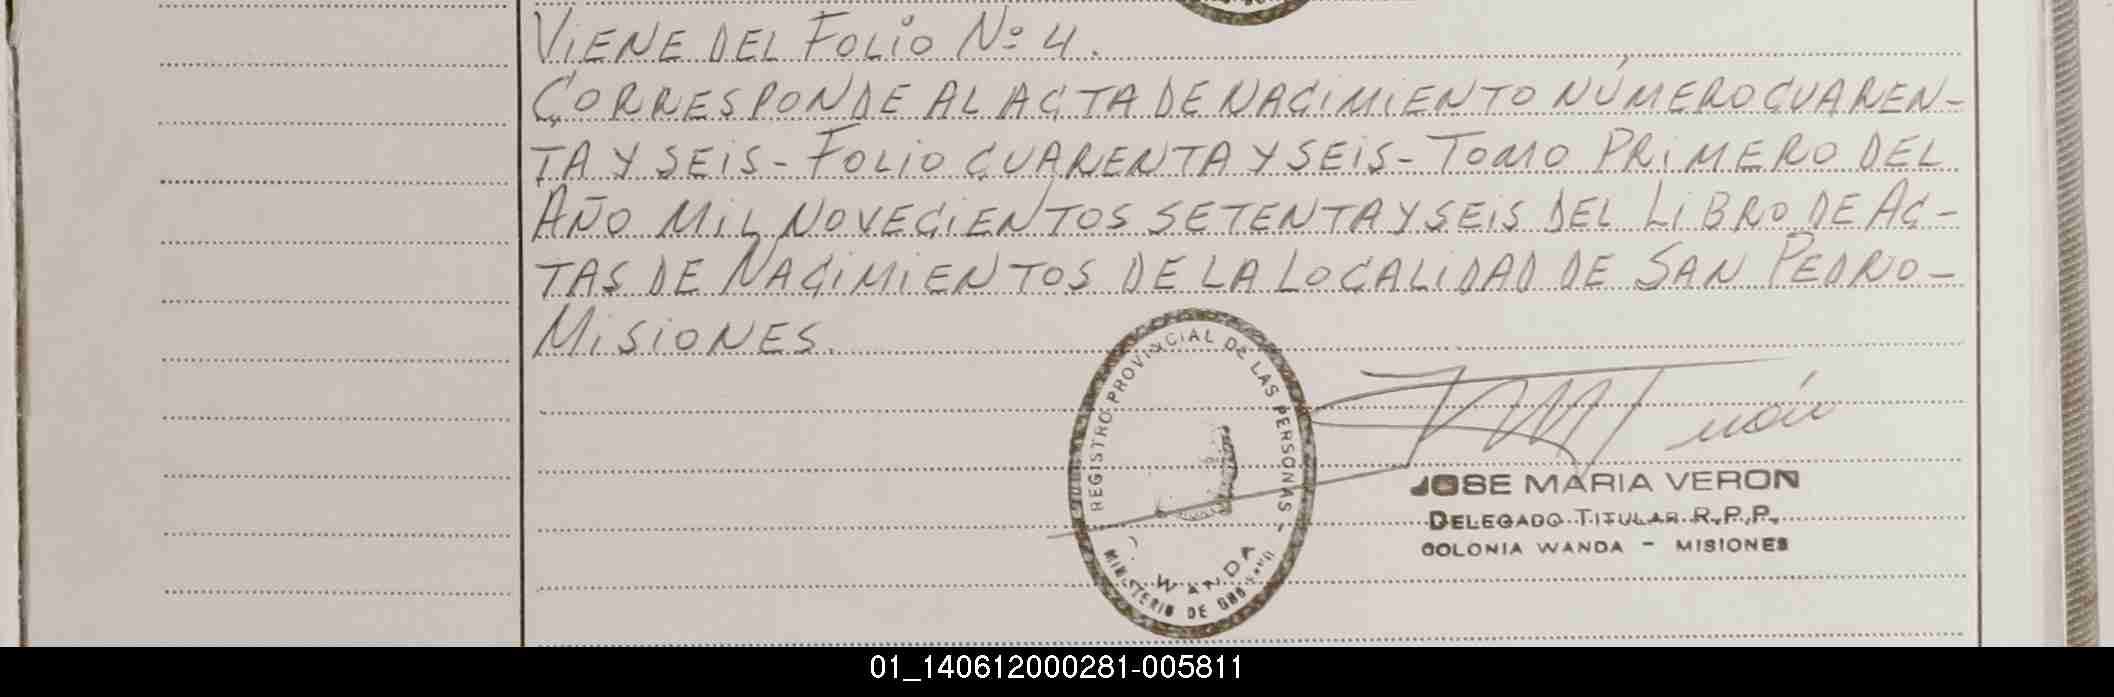 VIENE DEL FOLIO Nº 4.
CORRESPONDE AL ACTA DE NACIMIENTO NÚMERO CUAREN-
TA Y SEIS - FOLIO CUARENTA Y SEIS - TOMO PRIMERO DEL
AÑO MIL NOVECIENTOS SETENTA Y SEIS DEL LIBRO DE AC-
TAS DE NACIMIENTOS DE LA LOCALIDAD DE SAN PEDRO -
MISIONES.
REGISTRO PROVINCIAL DE LAS PERSONAS -
WANDA
MINISTERIO DE GOB
JOSE MARIA VERON
DELEGADO TITULAR R.P.P.
COLONIA WANDA - MISIONES
01_140612000281-005811